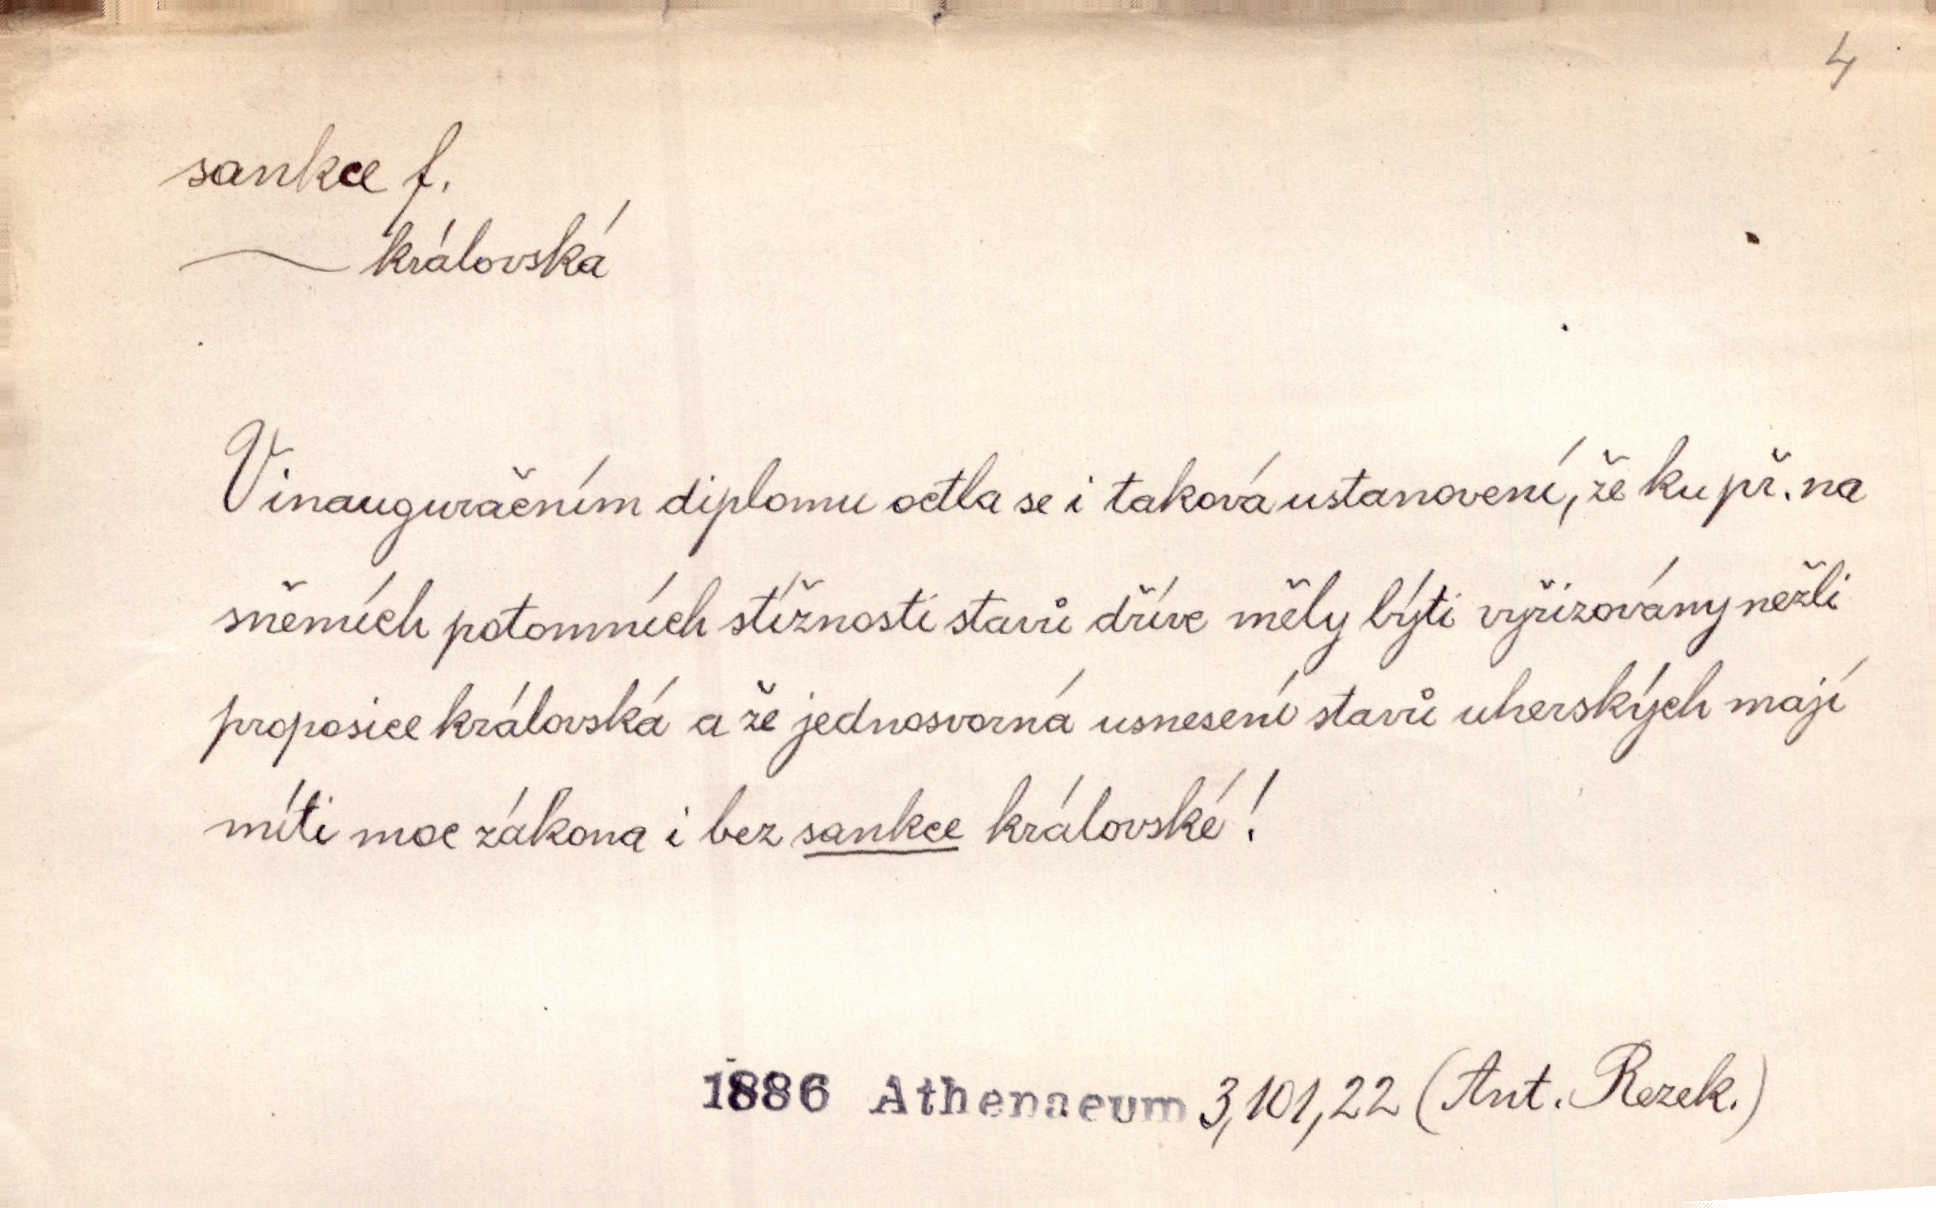 4
sankce f.
královská
V inauguračním diplomu octla se i taková ustanovení, že ku př. na
sněmích potomních stížnosti stavů dříve měly býti vyřizovány nežli
proposice královská a že jednosvorná usnesení stavů uherských mají
míti moc zákona i bez sankce královské!
1886 Athenaeum 3,101,22 (Ant. Rezek.)